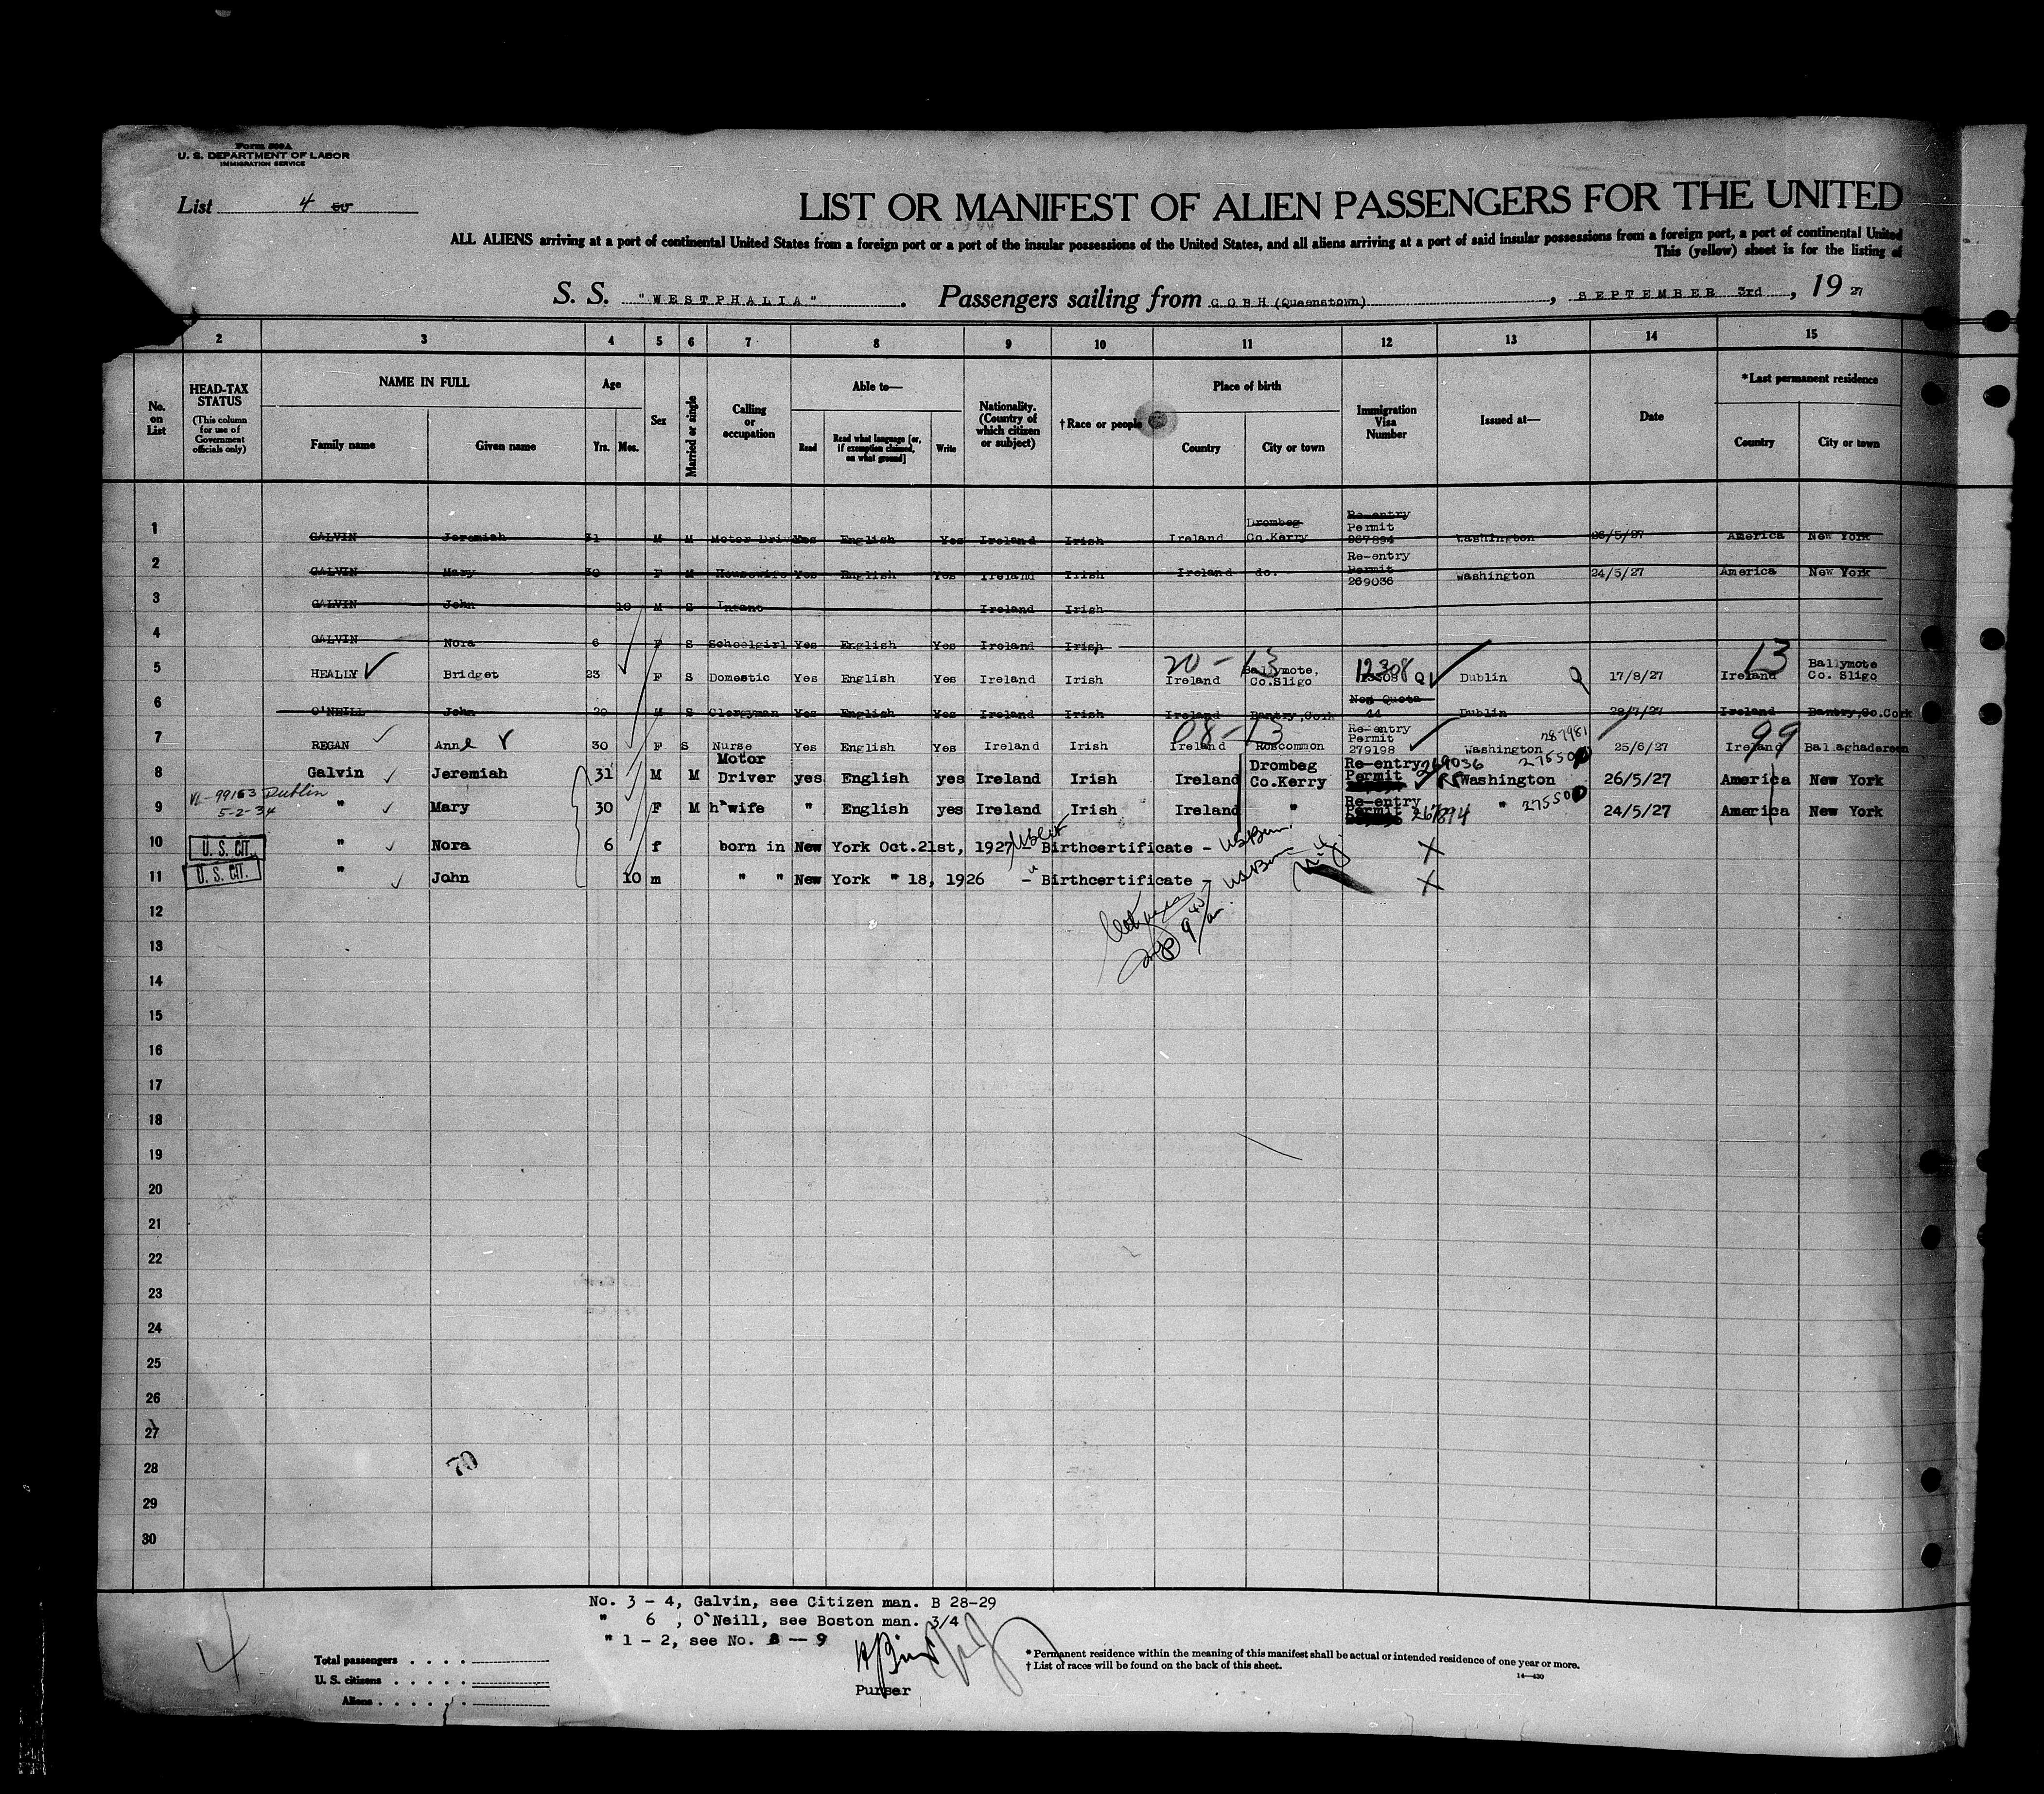 Form 500A
U. S. DEPARTMENT OF LABOR
IMMIGRATION SERVICE
List 4
LIST OR MANIFEST OF ALIEN PASSENGERS FOR THE UNITED
ALL ALIENS arriving at a port of continental United States from a foreign port or a port of the insular possessions of the United States, and all aliens arriving at a port of said insular possessions from a foreign port, a port of continental United
This (yellow) sheet is for the listing of
S. S. "WESTPHALIA". Passengers sailing from COBH (Queenstown), SEPTEMBER 3rd, 19 27
2 3 4 5 6 7 8 9 10 11 12 13 14 15
No. on List
HEAD-TAX STATUS (This column for use of Government officials only)
NAME IN FULL Family name Given name
Age Yrs. Mos.
Sex
Married or single
Calling or occupation
Able to— Read Read what language [or, if exemption claimed, on what ground] Write
Nationality. (Country of which citizen or subject)
†Race or people
Place of birth Country City or town
Immigration Visa Number
Issued at—
Date
*Last permanent residence Country City or town
1 GALVIN Jeremiah 31 M M Motor Driver Yes English Yes Ireland Irish Ireland Drombeg Co.Kerry Re-entry Permit 267894 Washington 26/5/27 America New York
2 GALVIN Mary 30 F M Housewife Yes English Yes Ireland Irish Ireland do. Re-entry Permit 269036 Washington 24/5/27 America New York
3 GALVIN John 10 M S Infant Ireland Irish
4 GALVIN Nora 6 F S Schoolgirl Yes English Yes Ireland Irish
20-13 12308 13
5 HEALLY Bridget 23 F S Domestic Yes English Yes Ireland Irish Ireland Ballymote, Co.Sligo Dublin 17/8/27 Ireland Ballymote Co. Sligo
6 O'NEILL John 29 M S Clergyman Yes English Yes Ireland Irish Ireland Bantry,Cork Non Quota 44 Dublin 28/7/27 Ireland Bantry,Co.Cork
08-13 287981 99
7 REGAN Anne 30 F S Nurse Yes English Yes Ireland Irish Ireland Roscommon Re-entry Permit 279198 Washington 25/6/27 Ireland Ballaghadereen
8 Galvin Jeremiah 31 M M Motor Driver yes English yes Ireland Irish Ireland Drombeg Co.Kerry Re-entry Permit 269036 Washington 275500 26/5/27 America New York
VL-99163 Dublin
5-2-34
9 " Mary 30 F M h'wife " English yes Ireland Irish Ireland " Re-entry Permit 267894 " 275500 24/5/27 America New York
10 U. S. CIT. " Nora 6 f born in New York Oct.21st, 1927 - Birthcertificate -
11 U. S. CIT. " John 10 m " " New York " 18, 1926 - Birthcertificate -
12
13
14
15
16
17
18
19
20
21
22
23
24
25
26
27
28
29
30
70
No. 3 - 4, Galvin, see Citizen man. B 28-29
" 6 , O'Neill, see Boston man. 3/4
" 1 - 2, see No. 8 -- 9
4
Purser
Total passengers
U. S. citizens
Aliens
* Permanent residence within the meaning of this manifest shall be actual or intended residence of one year or more.
† List of races will be found on the back of this sheet.
14—430